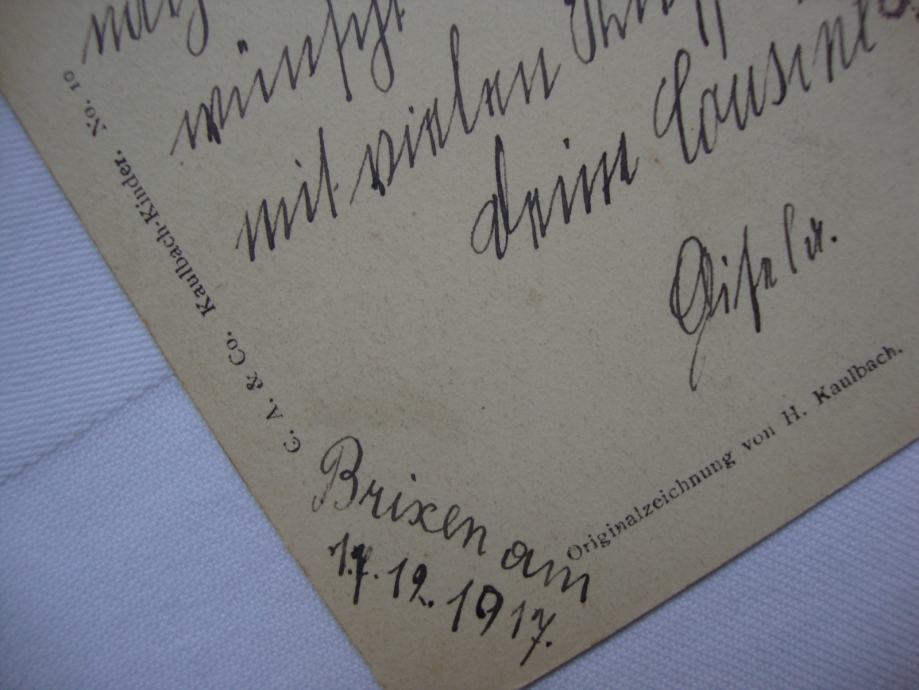 wünscht
mit vielen
deine Cousine
Gisela.
Brixen am
17.12.1917.
C. A. & Co. Kaulbach-Kinder. No. 10
Originalzeichnung von H. Kaulbach.